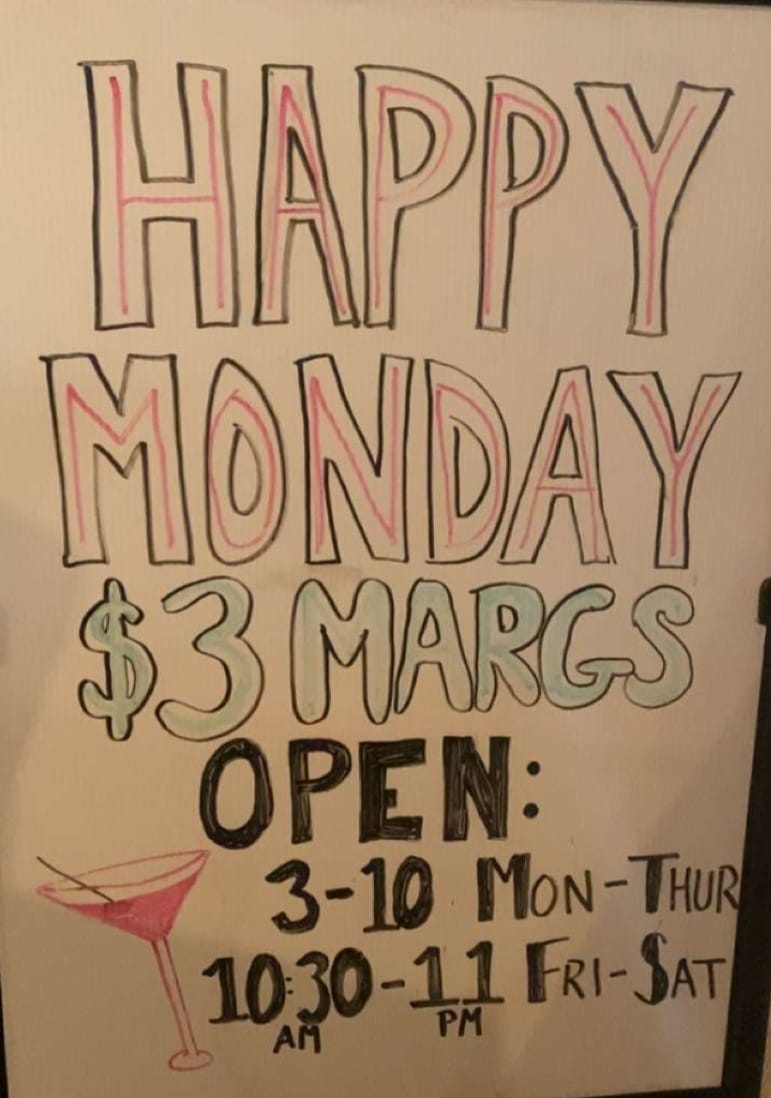 HAPPY
MONDAY
$3 MARGS
OPEN:
3-10 MON-THUR
10:30-11 FRI-SAT
AM PM